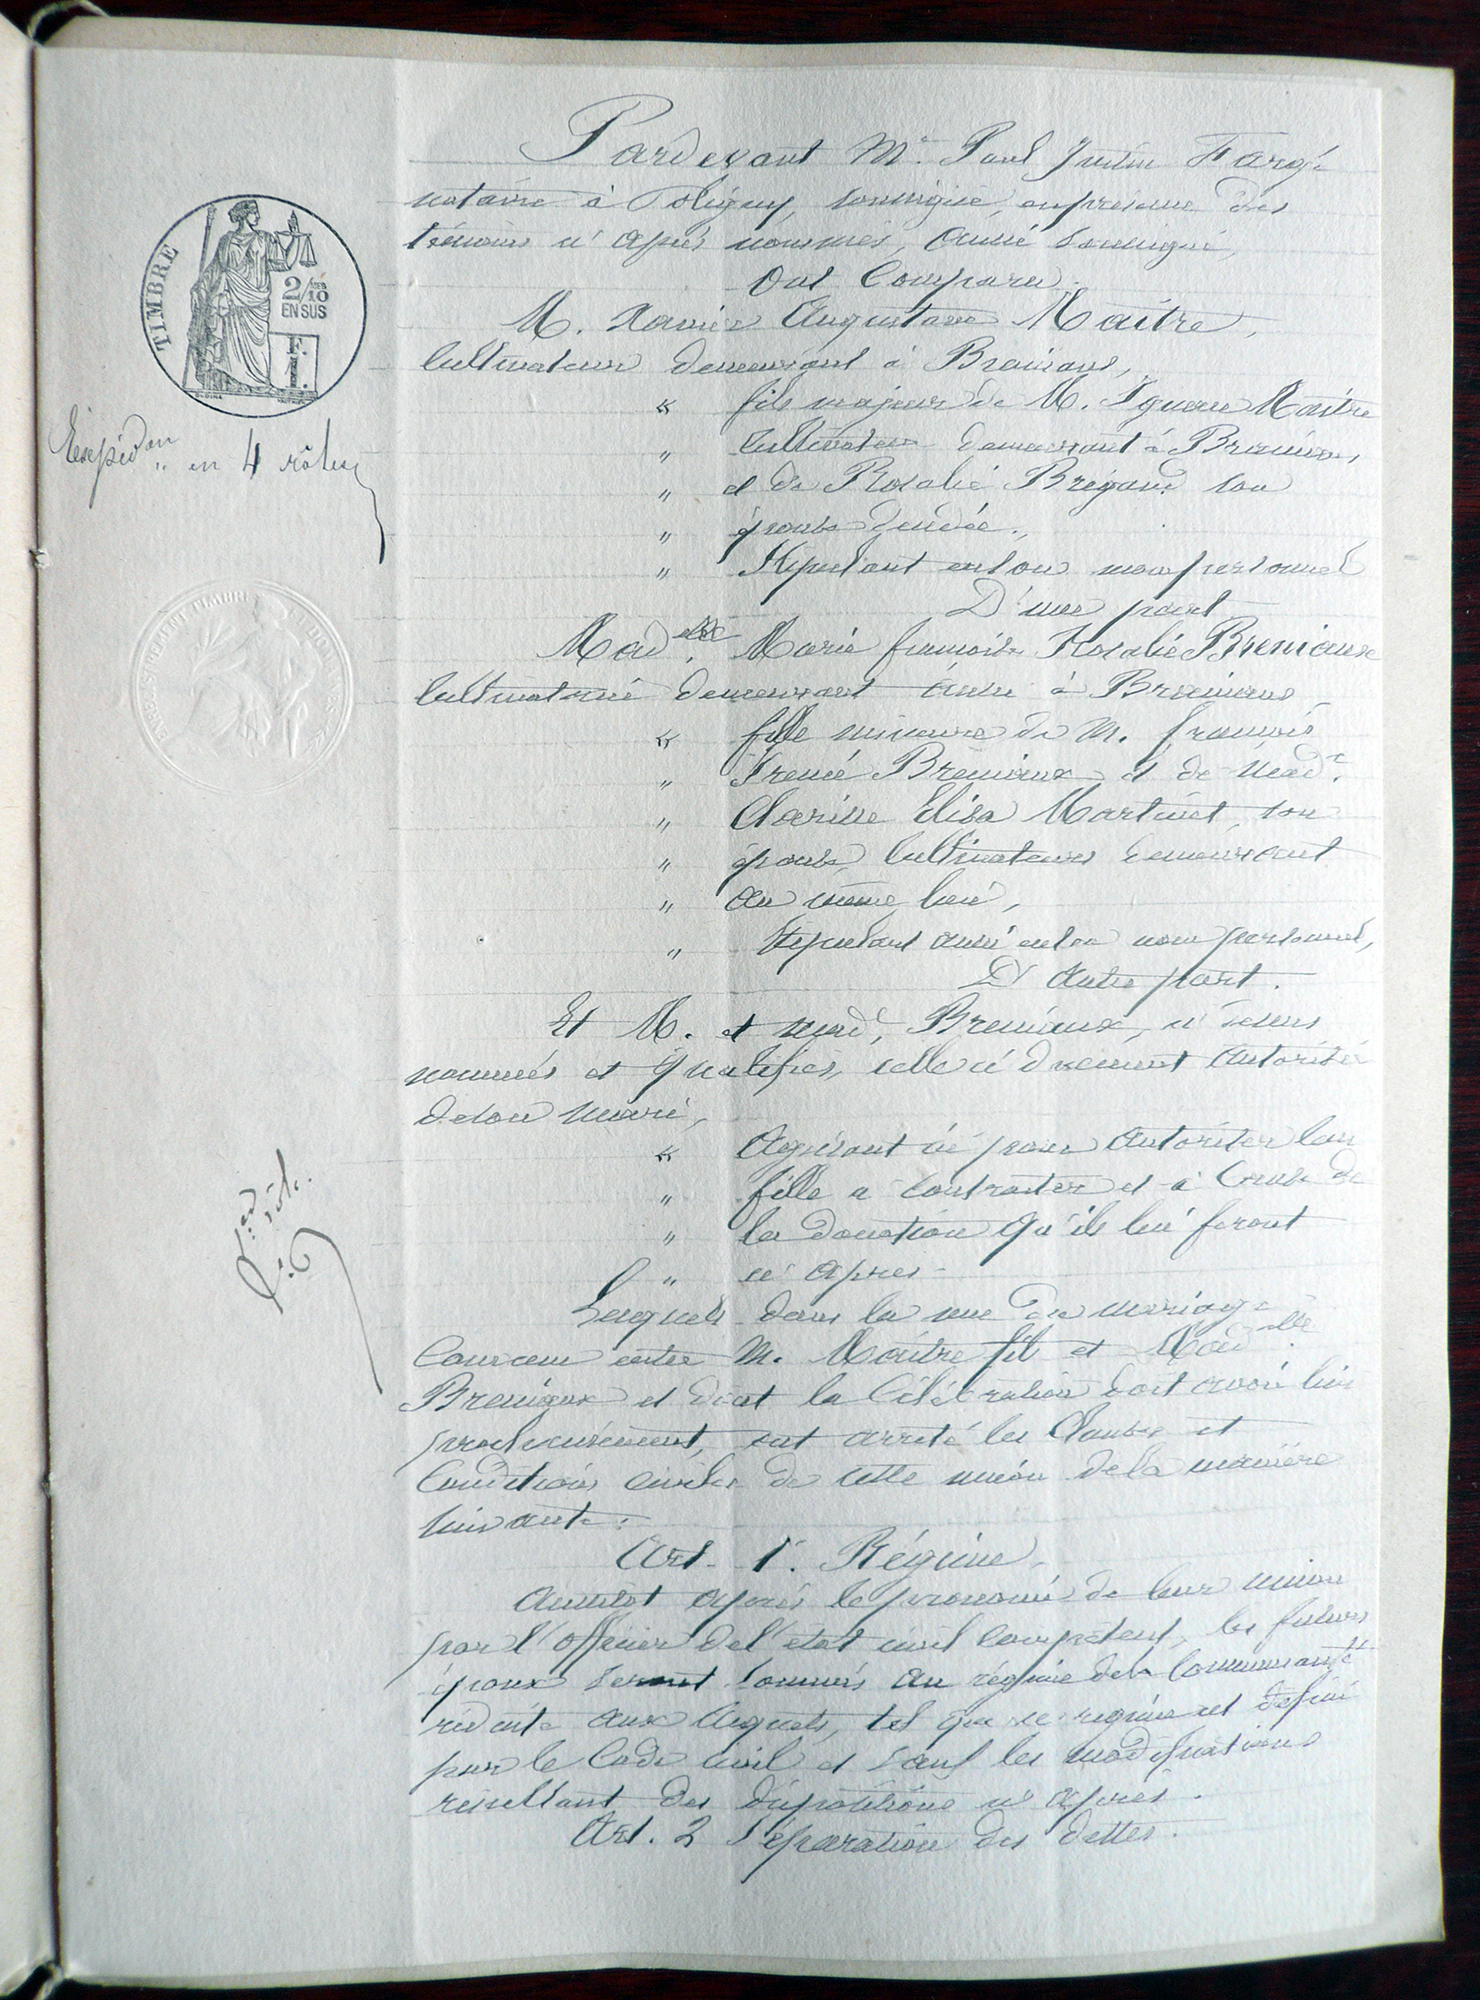 Pardevant Me. Paul Justin Farge
notaire à Poligny, soussigné, en présence des
témoins ci après nommés, aussi soussignés,
Ont Comparu
M. Xavier Augustave Maitre,
Cultivateur demeurant à Brainans,
TIMBRE
2/10 DES
EN SUS
F.
1.
« fils majeur de M. Ignace Maitre
" Cultivateur demeurant à Brainans,
" et de Rosalie Brégand son
" épouse décédée.,
" Stipulant en son nom personnel
D'une part
Expédon en 4 rôles
Madelle. Marie françoise Rosalie Breniaux
Cultivatrice demeurant aussi à Brainans
« fille mineure de M. françois
" Irené Breniaux et de Made.
" Clarisse Elisa Martinet, son
" épouse, Cultivateurs demeurant
" au même lieu,
" Stipulant aussi en son nom personnel,
D'autre part.
Et M. et Made. Breniaux, ci dessus
nommés et qualifiés, celle ci dûment autorisée
de son mari,
« Agissant ici pour Autoriser leur
" fille a contracter et à Cause de
" la donation qu'ils lui feront
" ci après -
Lesquels dans la vue du mariage
Convenu entre M. Maitre fils et Madelle.
Breniaux et dont la Célébration doit avoir lieu
prochainement, ont arrêté les Clauses et
Conditions civiles de cette union de la manière
suivante:
Art. 1er. Régime.
Aussitot après le prononcé de leur union
par l'officier de l'état civil compétent, les futurs
époux seront soumis au régime de la Communauté
réduite aux Acquets, tel que ce régime est défini
par le Code civil et sauf les modifications
résultant des dispositions ci après.
Art. 2 Séparation des dettes.